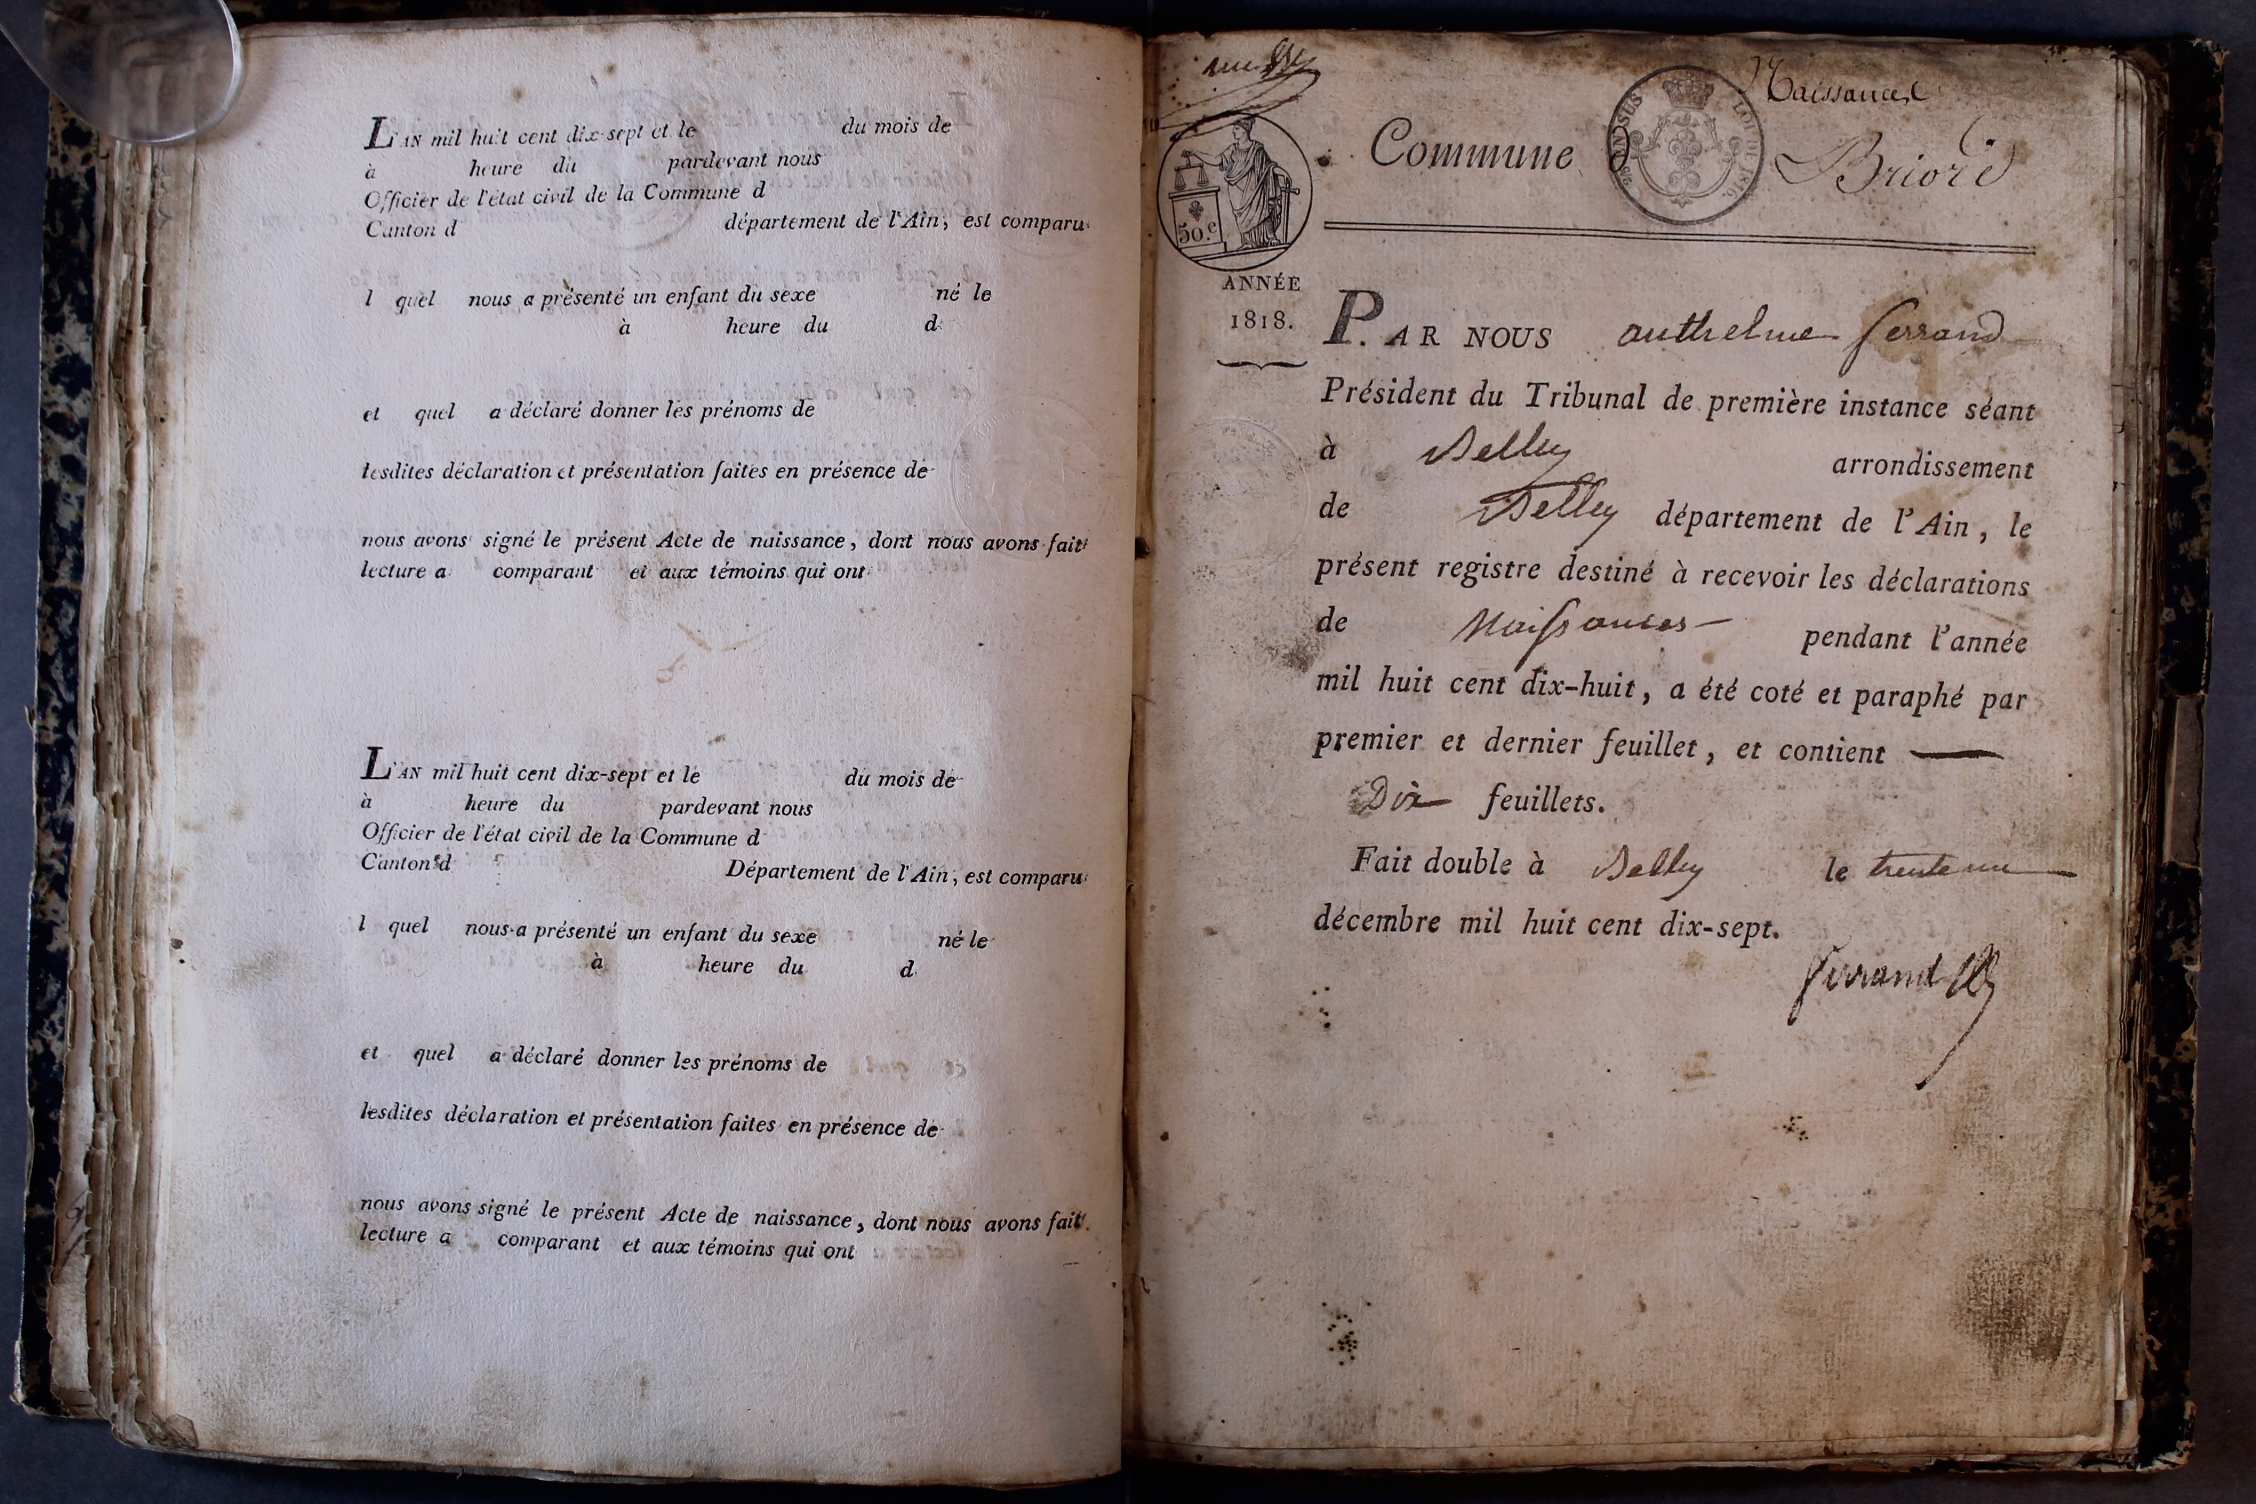 L'AN mil huit cent dix-sept et le du mois de
à heure du pardevant nous
Officier de l'état civil de la Commune d
Canton d département de l'Ain, est comparu
l quel nous a présenté un enfant du sexe né le
à heure du d
et quel a déclaré donner les prénoms de
lesdites déclaration et présentation faites en présence de
nous avons signé le présent Acte de naissance, dont nous avons fait
lecture a comparant et aux témoins qui ont
L'AN mil huit cent dix-sept et le du mois de
à heure du pardevant nous
Officier de l'état civil de la Commune d
Canton d Département de l'Ain, est comparu
l quel nous a présenté un enfant du sexe né le
à heure du d
et quel a déclaré donner les prénoms de
lesdites déclaration et présentation faites en présence de
nous avons signé le présent Acte de naissance, dont nous avons fait
lecture a comparant et aux témoins qui ont
Naissances
Commune d Briord
LOI DE 1816.
50.c
ANNÉE
1818.
PAR NOUS anthelme ferrand
Président du Tribunal de première instance séant
à Belley arrondissement
de Belley département de l'Ain, le
présent registre destiné à recevoir les déclarations
de Naissances pendant l'année
mil huit cent dix-huit, a été coté et paraphé par
premier et dernier feuillet, et contient
Dix feuillets.
Fait double à Belley le trente un
décembre mil huit cent dix-sept.
ferrand